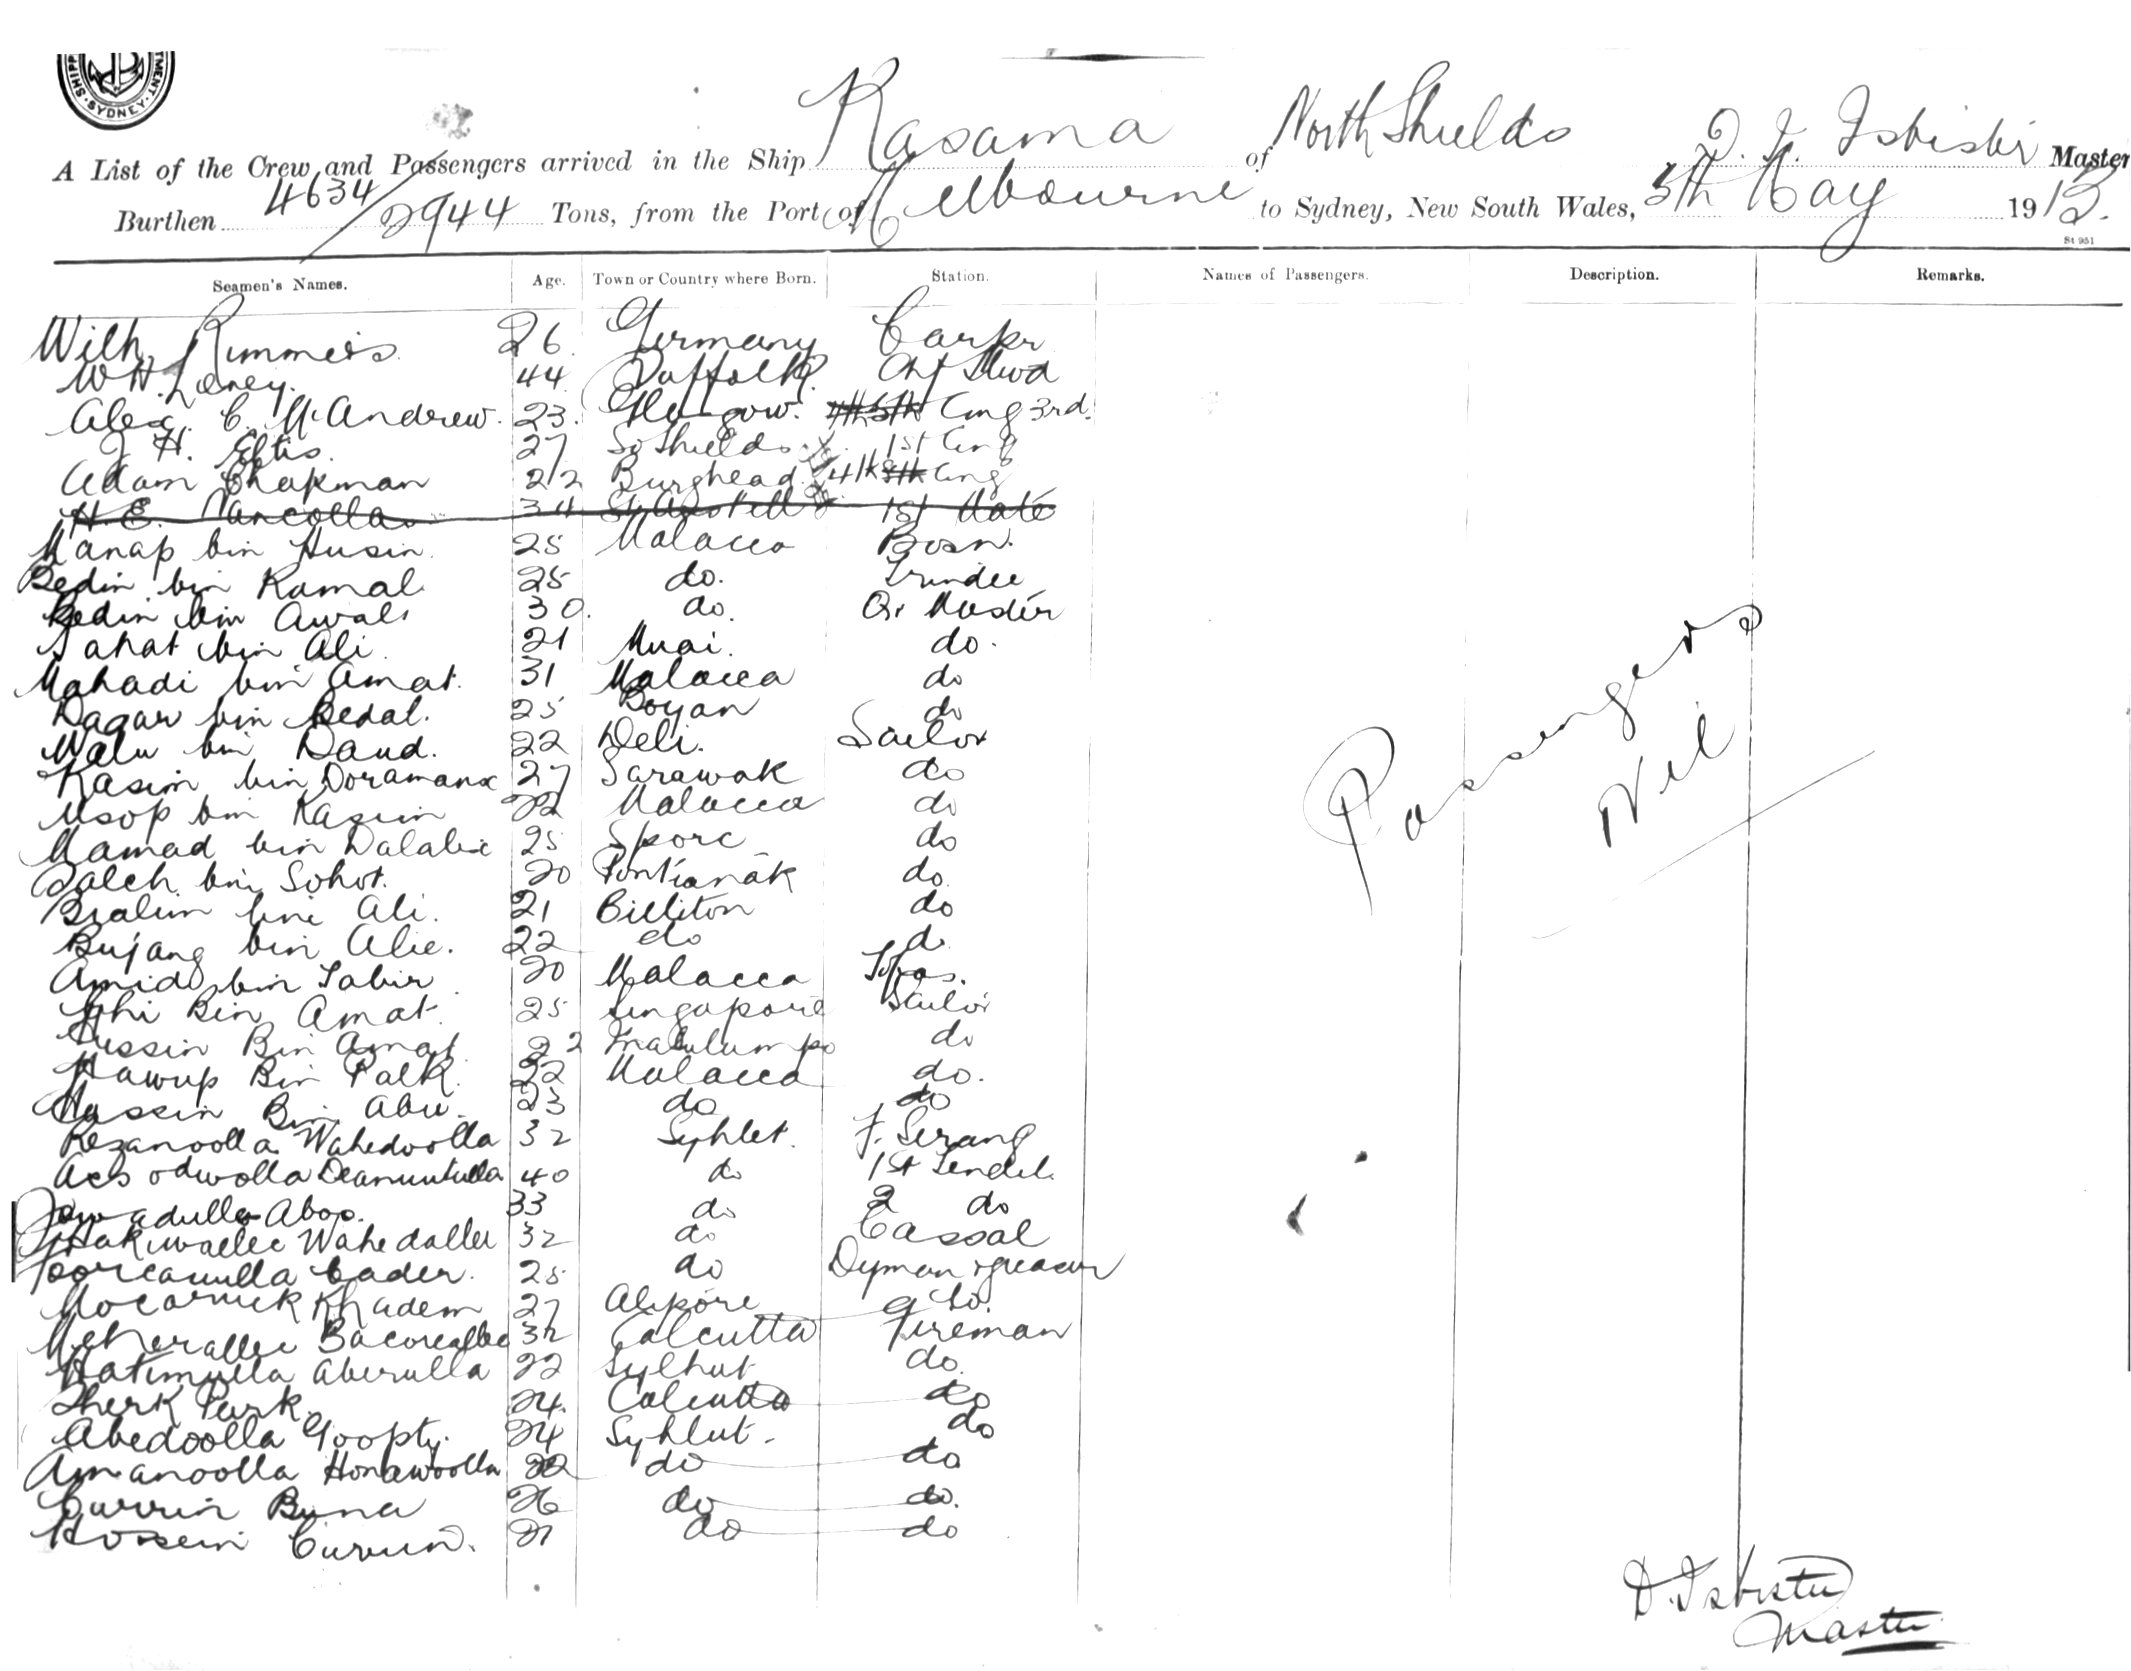 SYDNEY
A List of the Crew and Passengers arrived in the Ship Kasama of North Shields Isbister Master
Burthen 4634/2944 Tons, from the Port of Melbourne to Sydney, New South Wales, 5th May 1913.
St 951
Seamen's Names. Age. Town or Country where Born. Station. Names of Passengers. Description. Remarks.
Wilh. Rimmers 26 Germany Carpr
W H. Laney. 44 Suffolk Chf Stwd
Alex. C. McAndrew. 23. Glasgow. 4th 5th Eng 3rd.
J H. Eltis. 27 So Shields 1st Eng
Adam Chapman 22 Burghead 4th 5th Eng
H. E. Nancollas 34 St Austell 1st Mate
Manap bin Husin. 25 Malacca Bosn.
Bedin bin Kamal 25 do. Trindle
Bedin bin Awal 30. do. Qr Master
Sahat bin Ali 21 Muai. do.
Mahadi bin Amat. 31 Malacca do
Dagar bin Bedal. 25 Boyan do
Malu bin Daud. 22 Deli. Sailor
Kasim bin Doramana 27 Sarawak do
Usop bin Kasim 22 Malacca do
Mamad bin Dalalie 25 Spore do
Saleh bin Sohot. 20 Pontianak do.
Bralim bin Ali. 21 Billiton do
Bujang bin Alie. 22 do do.
Amid bin Tabir 20 Malacca Topas.
Bin Amat. 25 Singapore Sailor
Hussin Bin Amat 22 do
Hawup Bin Palk. 22 Malacca do.
Hassin Bin Abu. 23 do do
Rezanoolla Wahedoolla 32 Syhlet. F. Serang
40 do 1st Tendel.
Aboo. 33 do 2 do
Wahedallee 32 do Cassal
Cader. 25 do Dyman & greaser
Khadem 27 Alipore do.
Meherallee 32 Calcutta Fireman
Hatimulla Aberulla 22 Sylhut do.
Sherk Purk. 24. Calcutta do
Abedoolla Goopty. 24 Syhlut. do
Amanoolla Honawoolla 22 do do
Currin Buna 26 do do.
Hossein Currun. 21 do do
Passengers
Nil
D. Isbister
Master